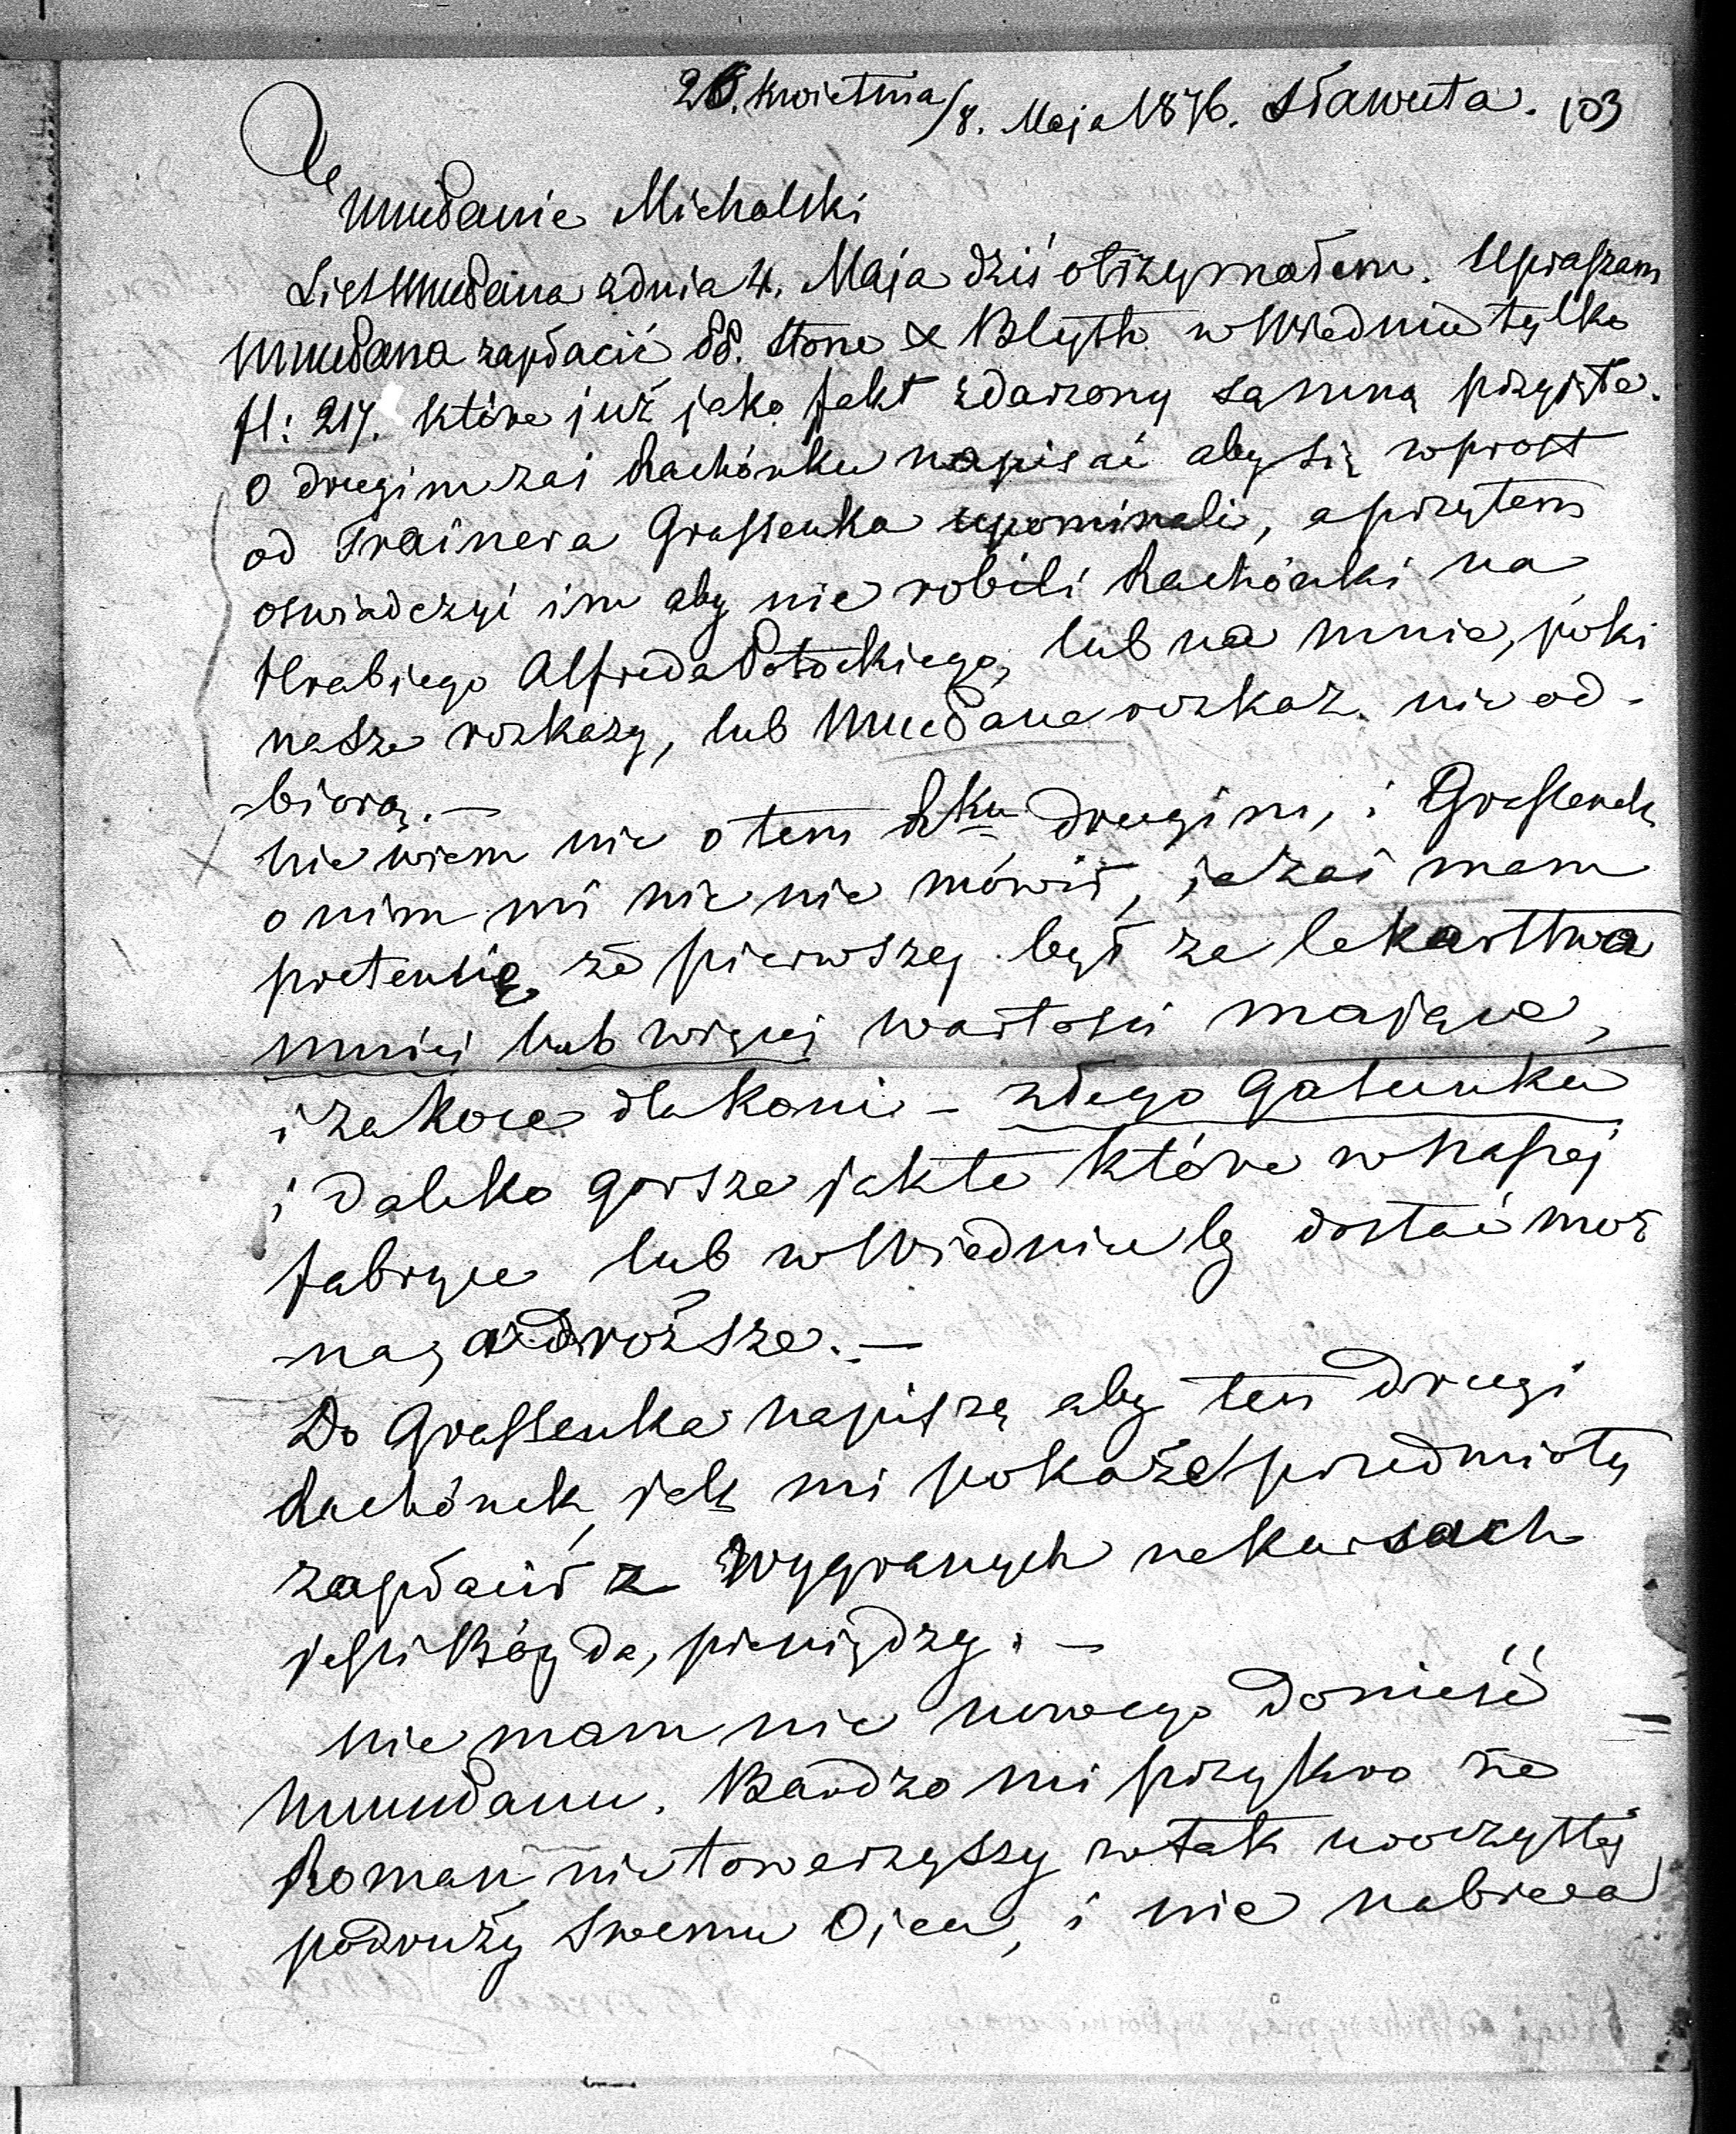 26. Kwietnia/8. Maja 1876. Sławuta. 103
Michalski
List WmcPana z dnia 4. Maja dziś otrzymałem. Upraszam
WmcPana zapłacić PP. Stone & Blyth w Wiedniu tylko
fl: 217. które już jako fakt zdarzony są mną przyjęte.
o drugim zaś Rachónku napisać aby się wprost
od Trainera Grafsenka upominali, a przytem
oswiadczyć im aby nie robili Rachónki na
Hrabiego Alfreda Potockiego, lub na mnie, póki
nasze rozkazy, lub WmcPana rozkaz nie od-
-biorą.—
nie wiem nic o tem Rku drugim, i Grafsenk
o nim mi nic nie mówił, ja zaś mam
pretensię że pierwszy był za lekarstwa
mniej lub więcej wartości mające,
i za koce dla koni – złego gatunku
i daleko gorsze jak te które w naszej
fabryce lub w Wiedniu by dostać moż
-na, a droższe.—
Do Grafsenka napiszę aby ten drugi
Rachónek, jak mi pokaże przedmioty
zapłacił z wygranych na kursach
jeśli Bóg da, pieniędzy. —
nie mam nic nowego donieść
WmcPanu. Bardzo mi przykro że
Roman nie towarzyszy w tak uroczystej
podruży swemu Ojcu, i nie nabiera